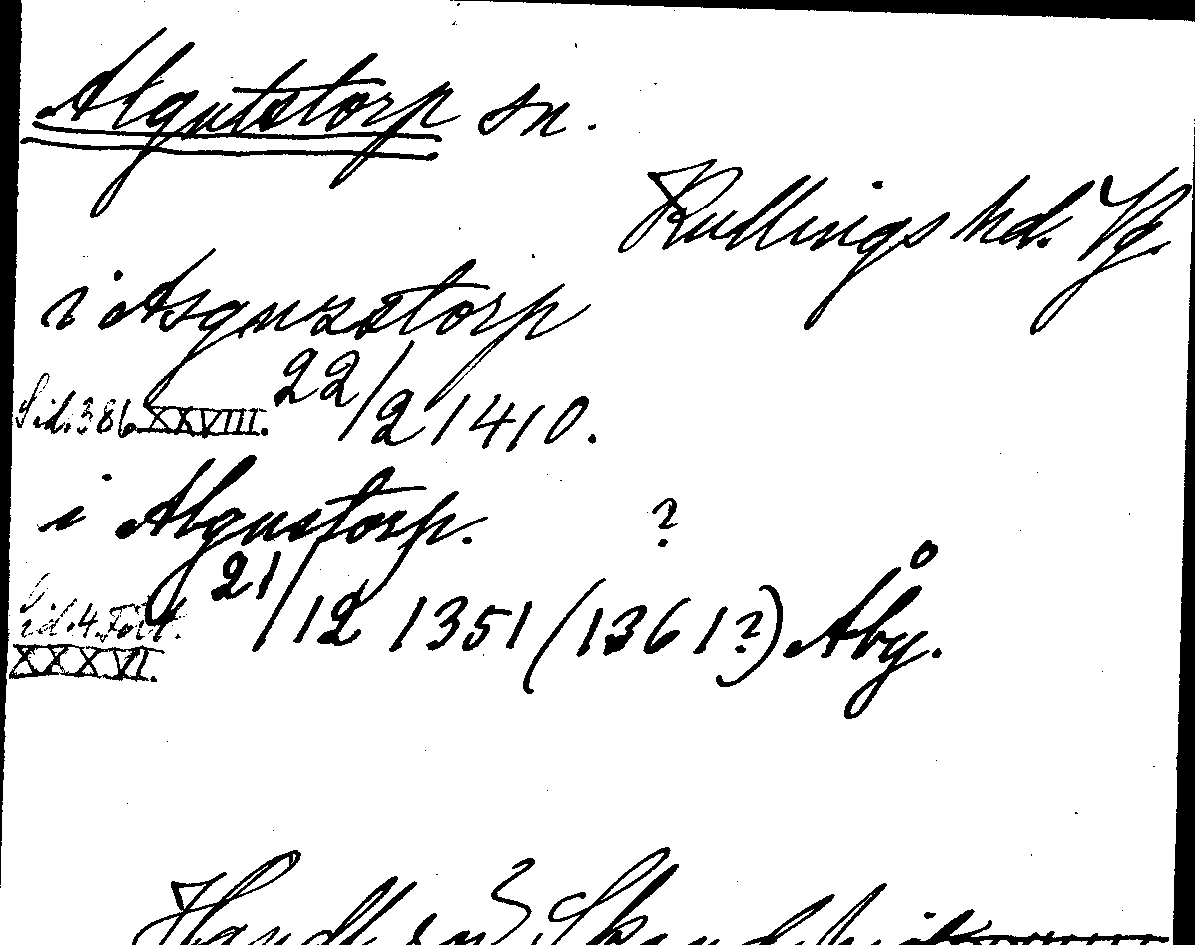 Algutstorp sn.
Kullings hd. Vg.
i Asguzstorp
Sid. 386 XXVIII. 22/2 1410.
i Algustorp. ?
Sid. 4 Fört. 21/12 1351 (1361?) Åby.
XXXVI.
Handl. rör. Skand. hist.